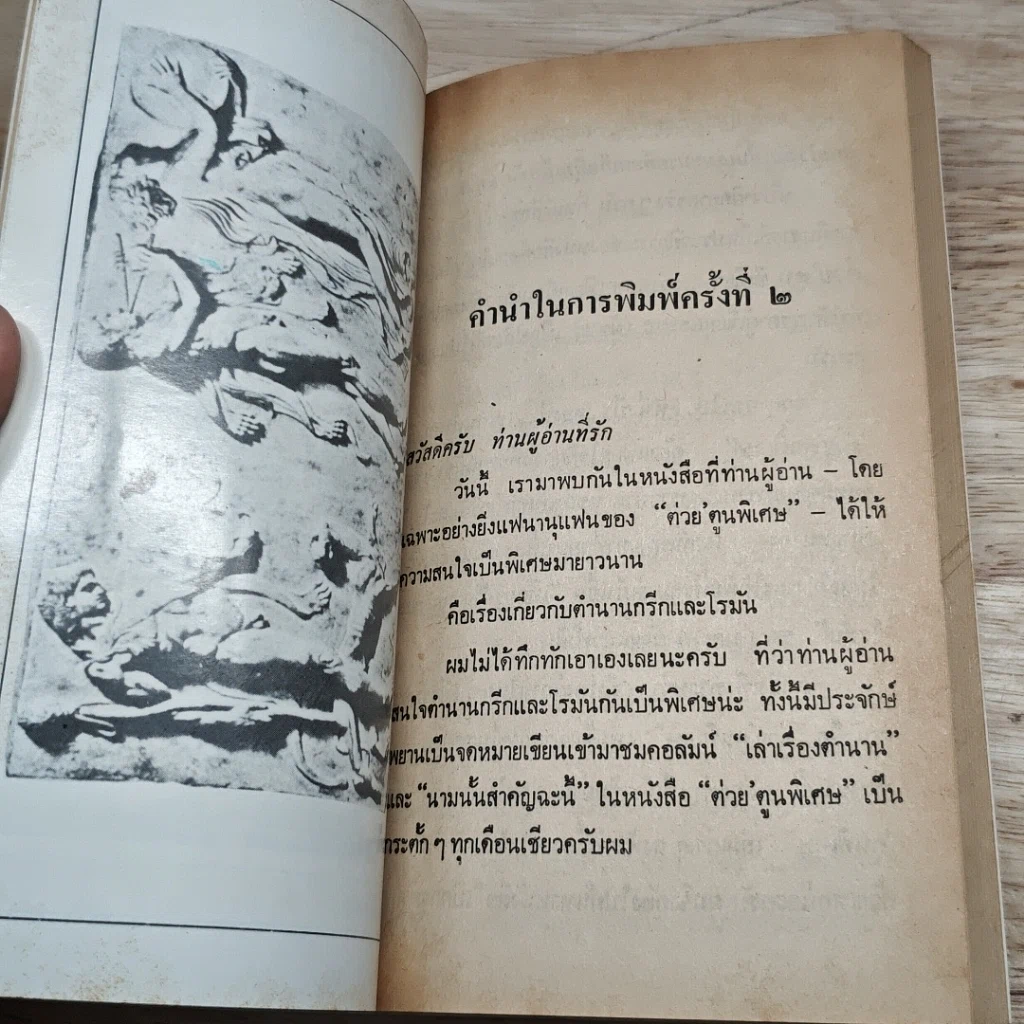 คำนำในการพิมพ์ครั้งที่ ๒
สวัสดีครับ ท่านผู้อ่านที่รัก
วันนี้ เรามาพบกันในหนังสือที่ท่านผู้อ่าน – โดย
เฉพาะอย่างยิ่งแฟนานุแฟนของ “ต่วย’ตูนพิเศษ” – ได้ให้
ความสนใจเป็นพิเศษมายาวนาน
คือเรื่องเกี่ยวกับตำนานกรีกและโรมัน
ผมไม่ได้ทึกทักเอาเองเลยนะครับ ที่ว่าท่านผู้อ่าน
สนใจตำนานกรีกและโรมันกันเป็นพิเศษน่ะ ทั้งนี้มีประจักษ์
พยานเป็นจดหมายเขียนเข้ามาชมคอลัมน์ “เล่าเรื่องตำนาน”
และ “นามนั้นสำคัญฉะนี้” ในหนังสือ “ต่วย’ตูนพิเศษ” เป็น
กระตั้ก ๆ ทุกเดือนเชียวครับผม